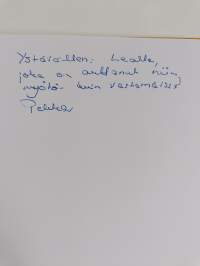 Ystävälleni Lealle,
joka on auttanut niin
myötä- kuin vastamäissä
Pekka